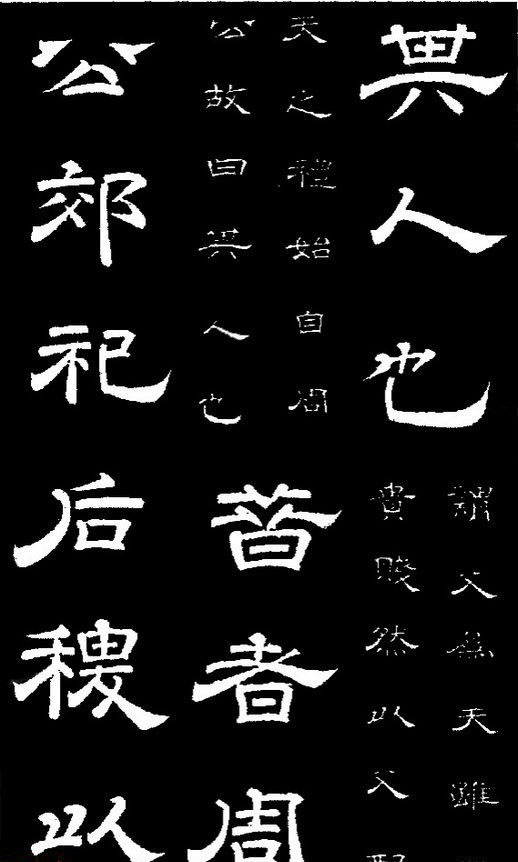 其人也
謂父爲天雖
貴賤然以父
天之禮始自周
公故曰其人也
昔者周
公郊祀后稷以